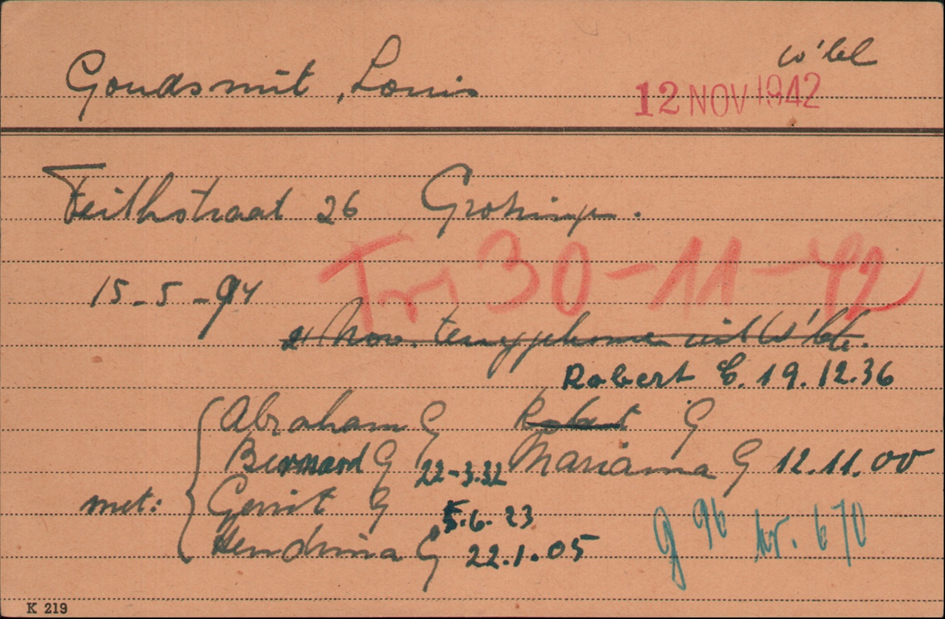 W'bl
Goudsmit, Louis 12 NOV 1942
Feithstraat 26 Groningen.
15-5-94 Tr 30-11-42
21 Nov. teruggekomen uit W'bl.
Robert G. 19.12.36
Abraham G Robert G
Bernard G 22-3-32 Marianna G 12.11.00
met: Gerrit G 5.6.23
Hendrina G 22.1.05 g 96 nr. 670
K 219